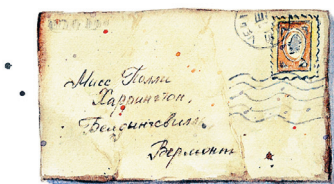 Мисс Полли
Харрингтон,
Белдингсвиль,
Вермонт